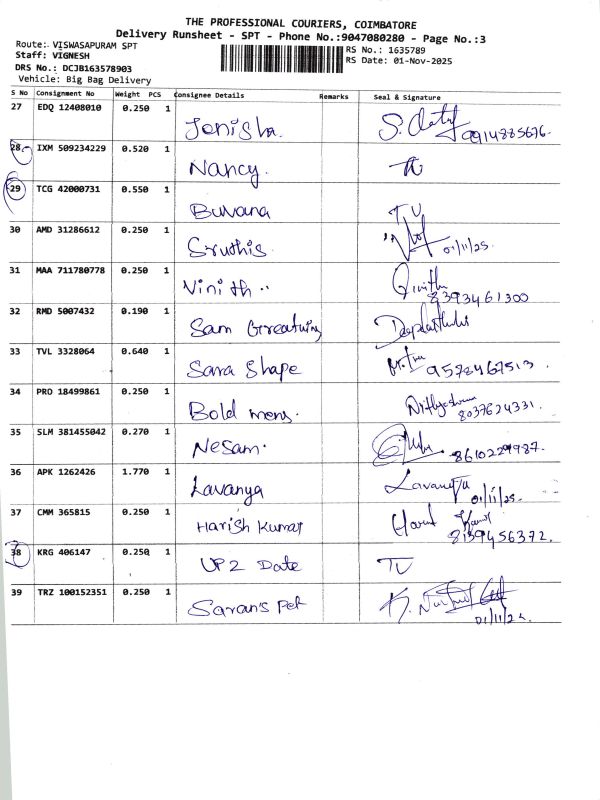 THE PROFESSIONAL COURIERS, COIMBATORE
Delivery Runsheet - SPT - Phone No.:9047080280 - Page No.:3
Route: VISWASAPURAM SPT
Staff: VIGNESH
DRS No.: DCJB163578903
Vehicle: Big Bag Delivery
RS No.: 1635789
RS Date: 01-Nov-2025
S No Consignment No Weight PCS Consignee Details Remarks Seal & Signature
27 EDQ 12408010 0.250 1 Jenisha. 9914885676.
28 IXM 509234229 0.520 1 Nancy.
29 TCG 42000731 0.550 1 Buvana TU
30 AMD 31286612 0.250 1 Sruthis. 01/11/25.
31 MAA 711780778 0.250 1 Vinith .. 8393461300
32 RMD 5007432 0.190 1 Sam Greatuing
33 TVL 3328064 0.640 1 Sara Shape 9578467513.
34 PRO 18499861 0.250 1 Bold mens. 8037624331.
35 SLM 381455042 0.270 1 Nesam. 8610229987.
36 APK 1262426 1.770 1 Lavanya Lavanya 01/11/25.
37 CMM 365815 0.250 1 Harish Kumar 8139456372.
38 KRG 406147 0.250 1 UP2 Date TU
39 TRZ 100152351 0.250 1 Sarans Pet 01/11/25.